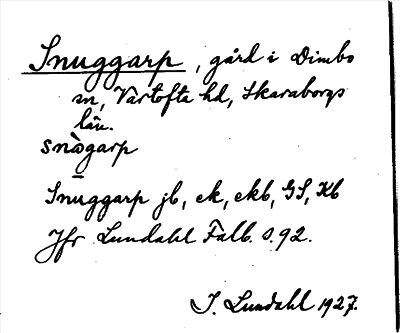 Snuggarp, gård i Dimbo
sn, Vartofta hd, Skaraborgs
län.
snògarp
Snuggarp jb, ek, ekb, GS, Kb
Jfr Lundahl Falb. s. 92.
I. Lundahl 1927.